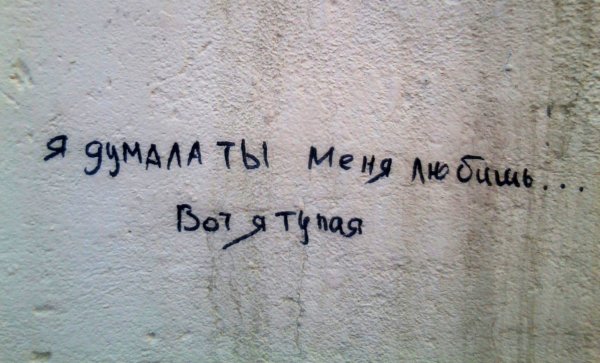 Я думала ты меня любишь...
Вот я тупая